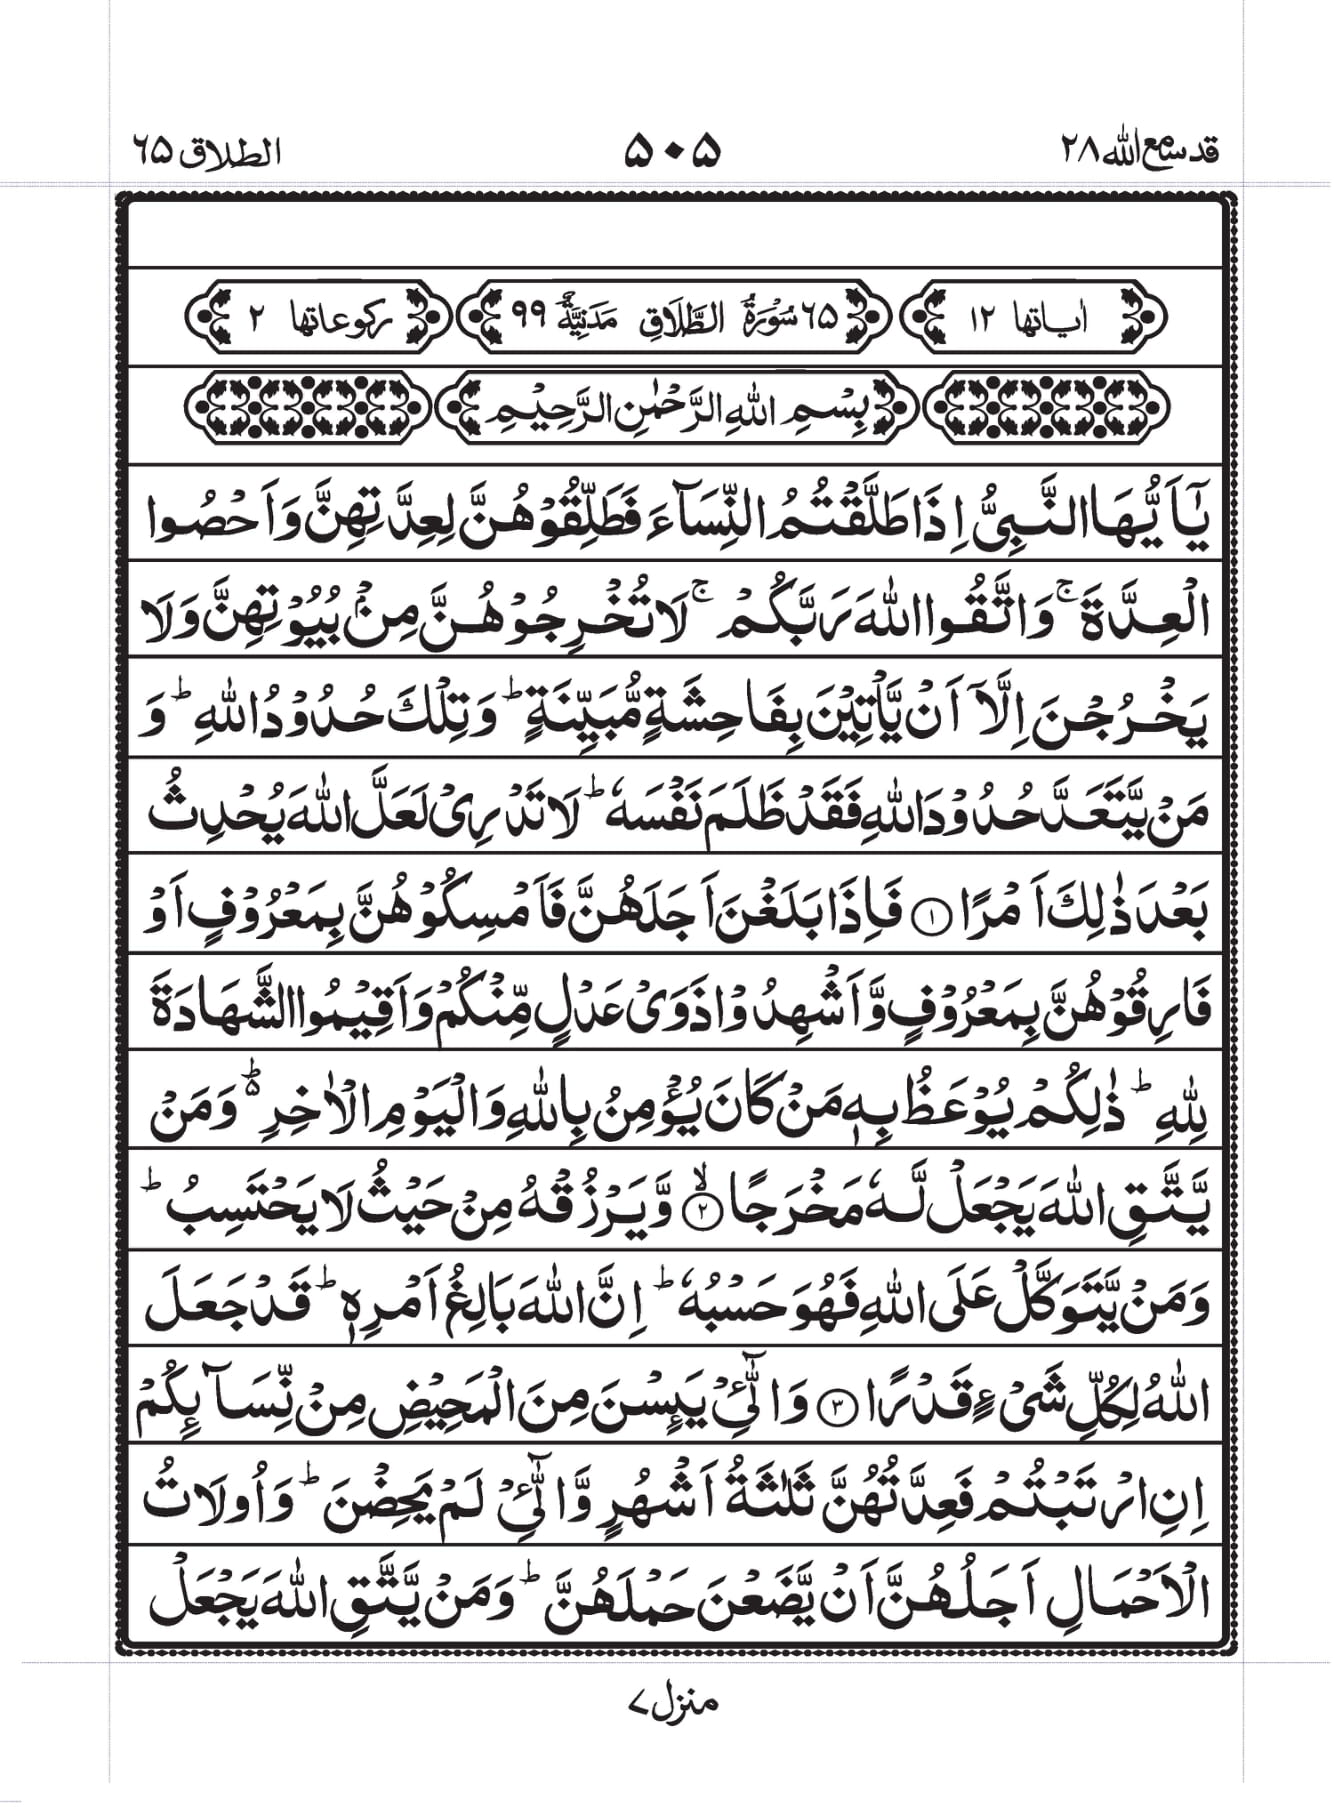 قد سمع الله ۲۸
۵۰۵
الطلاق ۶۵
اٰیاتها ۱۲
۶۵ سُوْرَةُ الطَّلَاقِ مَدَنِیَّةٌ ۹۹
رکوعاتها ۲
بِسْمِ اللّٰهِ الرَّحْمٰنِ الرَّحِیْمِ
یٰۤاَیُّهَا النَّبِیُّ اِذَا طَلَّقْتُمُ النِّسَآءَ فَطَلِّقُوْهُنَّ لِعِدَّتِهِنَّ وَاَحْصُوا
الْعِدَّةَ ۚ وَاتَّقُوا اللّٰهَ رَبَّكُمْ ۚ لَا تُخْرِجُوْهُنَّ مِنْۢ بُیُوْتِهِنَّ وَلَا
یَخْرُجْنَ اِلَّاۤ اَنْ یَّاْتِیْنَ بِفَاحِشَةٍ مُّبَیِّنَةٍ ؕ وَتِلْكَ حُدُوْدُ اللّٰهِ ؕ وَ
مَنْ یَّتَعَدَّ حُدُوْدَ اللّٰهِ فَقَدْ ظَلَمَ نَفْسَهٗ ؕ لَا تَدْرِیْ لَعَلَّ اللّٰهَ یُحْدِثُ
بَعْدَ ذٰلِكَ اَمْرًا ۝۱ فَاِذَا بَلَغْنَ اَجَلَهُنَّ فَاَمْسِكُوْهُنَّ بِمَعْرُوْفٍ اَوْ
فَارِقُوْهُنَّ بِمَعْرُوْفٍ وَّاَشْهِدُوْا ذَوَیْ عَدْلٍ مِّنْكُمْ وَاَقِیْمُوا الشَّهَادَةَ
لِلّٰهِ ؕ ذٰلِكُمْ یُوْعَظُ بِهٖ مَنْ كَانَ یُؤْمِنُ بِاللّٰهِ وَالْیَوْمِ الْاٰخِرِ ۬ؕ وَمَنْ
یَّتَّقِ اللّٰهَ یَجْعَلْ لَّهٗ مَخْرَجًا ۝۲ۙ وَّیَرْزُقْهُ مِنْ حَیْثُ لَا یَحْتَسِبُ ؕ
وَمَنْ یَّتَوَكَّلْ عَلَی اللّٰهِ فَهُوَ حَسْبُهٗ ؕ اِنَّ اللّٰهَ بَالِغُ اَمْرِهٖ ؕ قَدْ جَعَلَ
اللّٰهُ لِكُلِّ شَیْءٍ قَدْرًا ۝۳ وَالّٰٓئِیْ یَىِٕسْنَ مِنَ الْمَحِیْضِ مِنْ نِّسَآىِٕكُمْ
اِنِ ارْتَبْتُمْ فَعِدَّتُهُنَّ ثَلٰثَةُ اَشْهُرٍ وَّالّٰٓئِیْ لَمْ یَحِضْنَ ؕ وَاُولَاتُ
الْاَحْمَالِ اَجَلُهُنَّ اَنْ یَّضَعْنَ حَمْلَهُنَّ ؕ وَمَنْ یَّتَّقِ اللّٰهَ یَجْعَلْ
منزل ۷